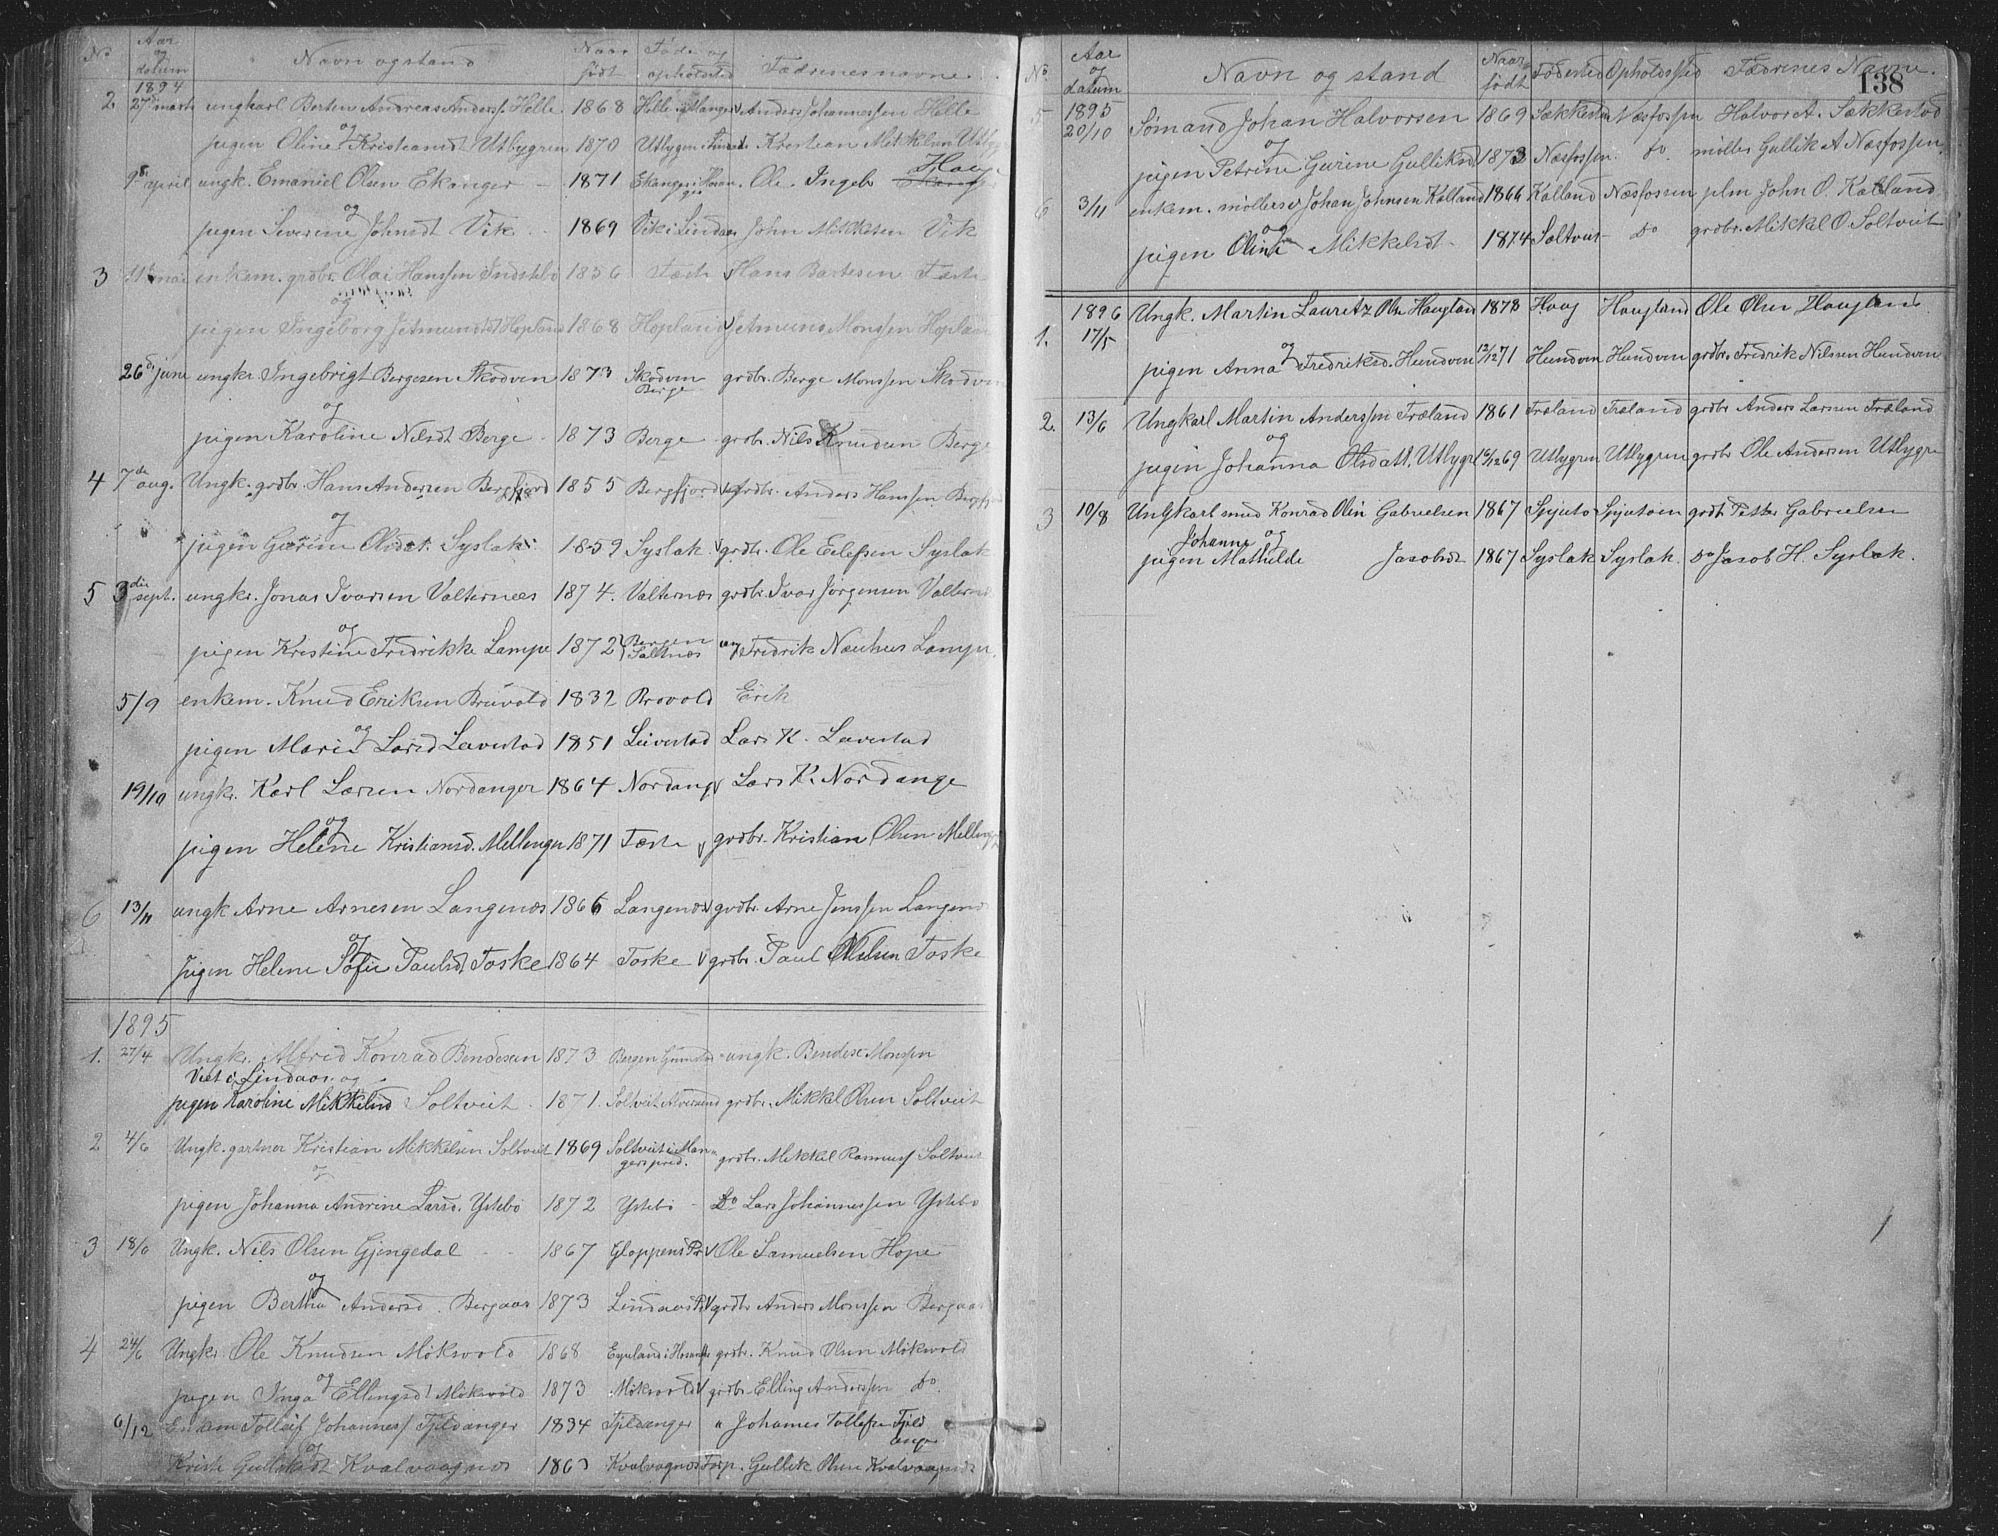 No Aar og datum Navn og stand Naar født Føde og opholdssted Fædrenes navne
1894
2 27de marts ungkarl Berten Andreas Anders. Helle 1868 Helle i Manger Anders Johannessen Helle
og
pigen Oline Kristiansdt Utlygren 1870 Utlygren Kristian Mikkelsen Utlyg
9de april ungk. Emaniel Olsen Ekanger 1871 Ekanger i Ole Ingeb Hauge
og
pigen Severine Johnsdt Vik 1869 Vik i Lindaas John Mikkelsen Vik
3 mai enkem. grdbr. Olai Hanssen Indstebø 1856 Fæste Hans Bartesen Fæste
og
pigen Ingeborg Jetmundsdt Hopland 1868 Hopland Jetmund Monssen Hopland
26de june ungkr Ingebrigt Bergesen Skodven 1873 Skodven Berge grdbr. Berge Monssen Skodven
og
pigen Karoline Nilsdt Berge 1873 Berge grdbr. Nils Knudsen Berge
4 7de aug. Ungk. grdbr. Hans Andersen Bergfjord 1855 Bergfjord grdbr. Anders Hanssen Bergfj
og
pigen Gurine Olsdt. Syslak 1859 Syslak grdbr. Ole Eilefsen Syslak
5 3die sept. ungkr. Jonas Ivarsen Valternæs 1874. Valternæs grdbr. Ivar Jørgensen Valternæs
og
pigen Kristine Fredrikke Lampe 1872 Bergen Saltnæs ung Fredrik Neuhus Lampe
5/9 enkem. Knud Eriksen Brøvold 1832 Brovold Erik
og
pigen Mari Larsd Leivestad 1851 Leivestad Lars K. Leivestad
19/10 ungkr. Karl Larsen Nordanger 1864 Nordang Lars K. Nordange
og
pigen Helene Kristiansd. Mellenger 1871 Fæste grdbr. Kristian Olsen Melleng
6 13/11 ungk Arne Arnesen Langenæs 1866 Langenæs grdbr. Arne Jenssen Langenæs
og
pigen Helene Sofie Paulsdt Toske 1864 Toske grdbr. Paul Olsen Toske
1895
1. 27/4 Ungkr. Alfred Konrad Bendesen 1873 Bergen ungk. Bendest Monssen
Viet i Lindaas. og
pigen Karoline Mikkelsd Soltveit 1871. Soltveit Alversund grdbr. Mikkel Olsen Soltveit
2 4/6 Ungk. gartner Kristian Mikkelsen Soltveit 1869 Soltveit i Mangers pred. grdbr. Mikkel Rasmuss Soltveit
og
pigen Johanna Andrine Larsd. Ystebø 1872 Ystebø Do Lars Johannessen Ystebø
3 18/6 Ungk. Nils Olsen Gjengedal 1867 Gloppens Pr Ole Samuelsen Hope
og
pigen Bertha Andersd. Bergaas 1873 Lindaas Pr grdbr Anders Monssen Bergaas
4 24/6 Ungkr Ole Knudsen Mökvold 1868 grdbr. Knud Olsen Mökvold
og
pigen Inga Ellingsdt Mökvold 1873 Mökvold grdbr. Elling Anderssen Do
6/12 Enkem Tolleif Johanness Fjeldanger 1834 Fjeldanger " Johannes Tollefsen Fjeldanger
og
Kristi Gulliksdt Kvalvaagnæs 1863 Kvalvagnæs Gullik Olsen Kvalvaagnæs
138
No. Aar og datum Navn og stand Naar født Fødested Opholdssted Fædrenes Navne.
5 1895 20/10 Sømand Johan Halvorsen 1869 Sækkestad Næsfossen Halvor A. Sækkestad
og
pigen Petrine Gurine Gulliksd 1873 Næsfossen. do. møller Gullik A Næsfossen.
6 3/11 enkem. møllersv Johan Johnsen Kalland 1866 Kalland Næsfossen plm John O. Kalland
og
pigen Oline Mikkelsdt 1874 Soltveit Do grdbr. Mikkel O. Soltveit
1896 Ungk. Martin Lauretz Olsen Haugland 1873 Haug Haugland Ole Olsen Haugland
1. 17/5 og
pigen Anna Fredriksd. Hundven 12/12 71 Hundven Hundven grdbr. Fredrik Nilsen Hundven
2. 13/6 Ungkarl Martin Anderssen Træland 1861 Træland Træland grdbr Anders Larsen Træland
og
pigen Johanna Olsdatt. Utlygre 12/12 69 Utlygren Utlygren grdbr Ole Andersen Utlygre
3 10/8 Ungkarl smed Konrad Olin Gabrielsen 1867 Spjuto Spjutoen grdb. Petter Gabrielsen
Johanne og
pigen Mathilde Jacobsd 1867 Syslak Syslak. Do Jacob H. Syslak.